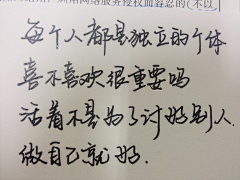 用户利用网络服务侵权而容忍的（不以
每个人都是独立的个体
喜不喜欢很重要吗
活着不是为了讨好别人.
做自己就好.